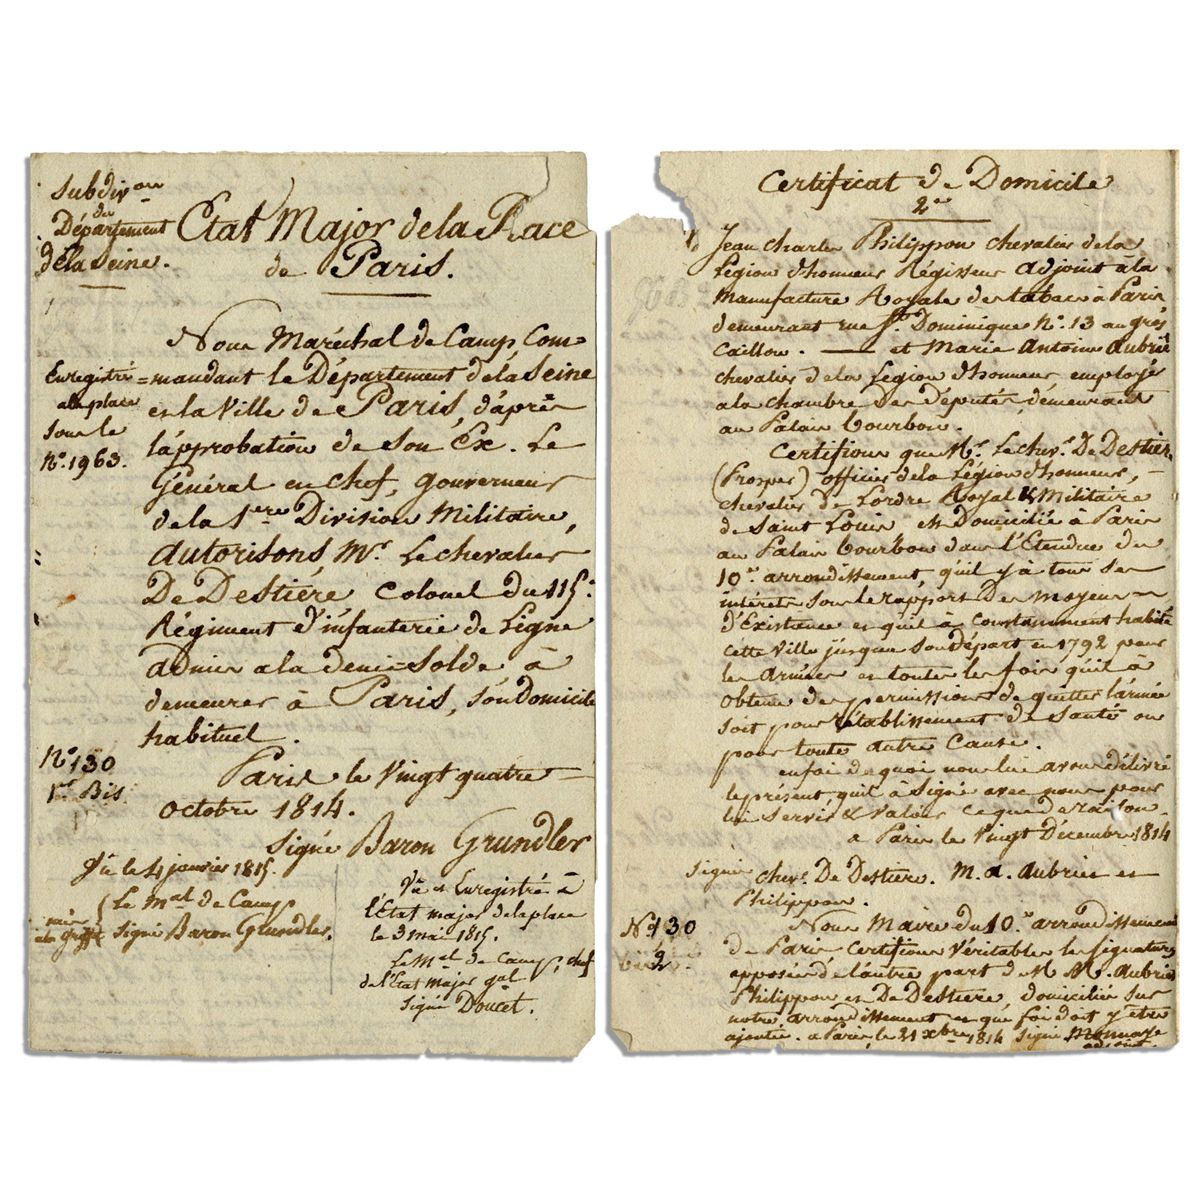 Subdiv.on
du
Département
de la Seine.
Etat Major de la Place
de Paris.
Nous Maréchal de Camp Com=
=mandant le Département de la Seine
et la Ville de Paris, d'après
l'approbation de Son Ex. Le
Général en chef, gouverneur
de la 1ere Division Militaire,
autorisons, Mr. Le chevalier
De Destiére Colonel du 115.e
Régiment d'infanterie de Ligne
admis a la demi-Solde à
demeurer à Paris, son Domicile
habituel.
Enregistré
a la place
sous le
No. 1963.
No. 130
1er Bis
Paris le Vingt quatre
octobre 1814.
Signé Baron Grundler
Vu le 4 janvier 1815.
Le Mal de Camp
Signé Baron Grundler.
Vu et Enregistré à
l'Etat major de la place
le 3 mai 1815.
Le Mal de Camp, chef
de l'Etat major gal
Signé Doucet.
Certificat de Domicile
2e
Jean Charles Philippon chevalier de la
Légion d'honneur Régisseur adjoint à la
Manufacture Royale des tabacs à Paris
demeurant rue St. Dominique No. 13 au gros
Caillou. — et Marie Antoine Aubriet
chevalier de la Légion d'honneur employé
a la chambre des Députés, demeurant
au Palais Bourbon.
Certifions que Mr. Le chev.r De Destiere
(Prosper) officier de la Légion d'honneur,
chevalier de Lordre Royal & Militaire
de Saint Louis est Domicilié à Paris
au Palais Bourbon dans l'Etendue du
10.e arrondissement, qu'il y à tous ses
intérets sous le rapport Des moyens
d'Existence et qu'il à Constamment habité
cette Ville jusques son départ en 1792 pour
les armées et toutes les fois qu'il à
obtenu des permissions de quitter l'armée
soit pour rétablissement de santé ou
pour toute autre Cause.
en foi de quoi nous lui avons délivré
le présent, qu'il à signé avec nous pour
lui Servir & Valoir ce que de raison
a Paris le Vingt Décembre 1814
Signé chev.r De Destiere. M. A. Aubriet et
Philippon.
No. 130
2e
Nous Maire du 10.e arrondissement
de Paris Certifions Véritables les signatures
apposées de l'autre part de M. M. Aubriet
Philippon et De Destiere, domiciliés sur
notre arrondissement et que foi doit y être
ajoutée. a Paris, le 21 Xbre 1814 Signé Monnaye
adjoint.